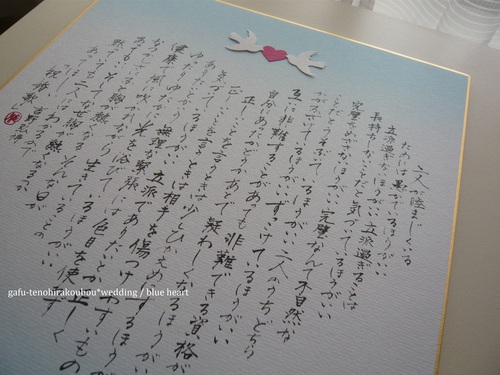 二人が睦まじくいる
ためには愚かでいるほうがいい
立派過ぎないほうがいい 立派過ぎることは
長持ちしないことだと気づいているほうがいい
完璧をめざさないほうがいい 完璧なんて不自然な
ことだとうそぶいているほうがいい 二人のうちどちら
かがふざけているほうがいい ずっこけているほうがいい
互いに非難することがあっても 非難できる資格が
自分にあったかどうか あとで 疑わしくなるほうがいい
正しいことを言うときは 少しひかえめにするほうがいい
正しいことを言うときは 相手を傷つけやすいもの
だと気づいているほうがいい 立派で
無理な緊張には色目を使わず
ゆったりゆたかに 光を浴びて
健康で風に吹かれながら 生きていることの
なつかしさに ふと胸が熱くなる そんな日が
あってもいい そして なぜ胸が熱くなるのか
黙っていても 二人には
わかるので
祝婚歌 吉野弘
gafu-tenohirakouhou*wedding / blue heart